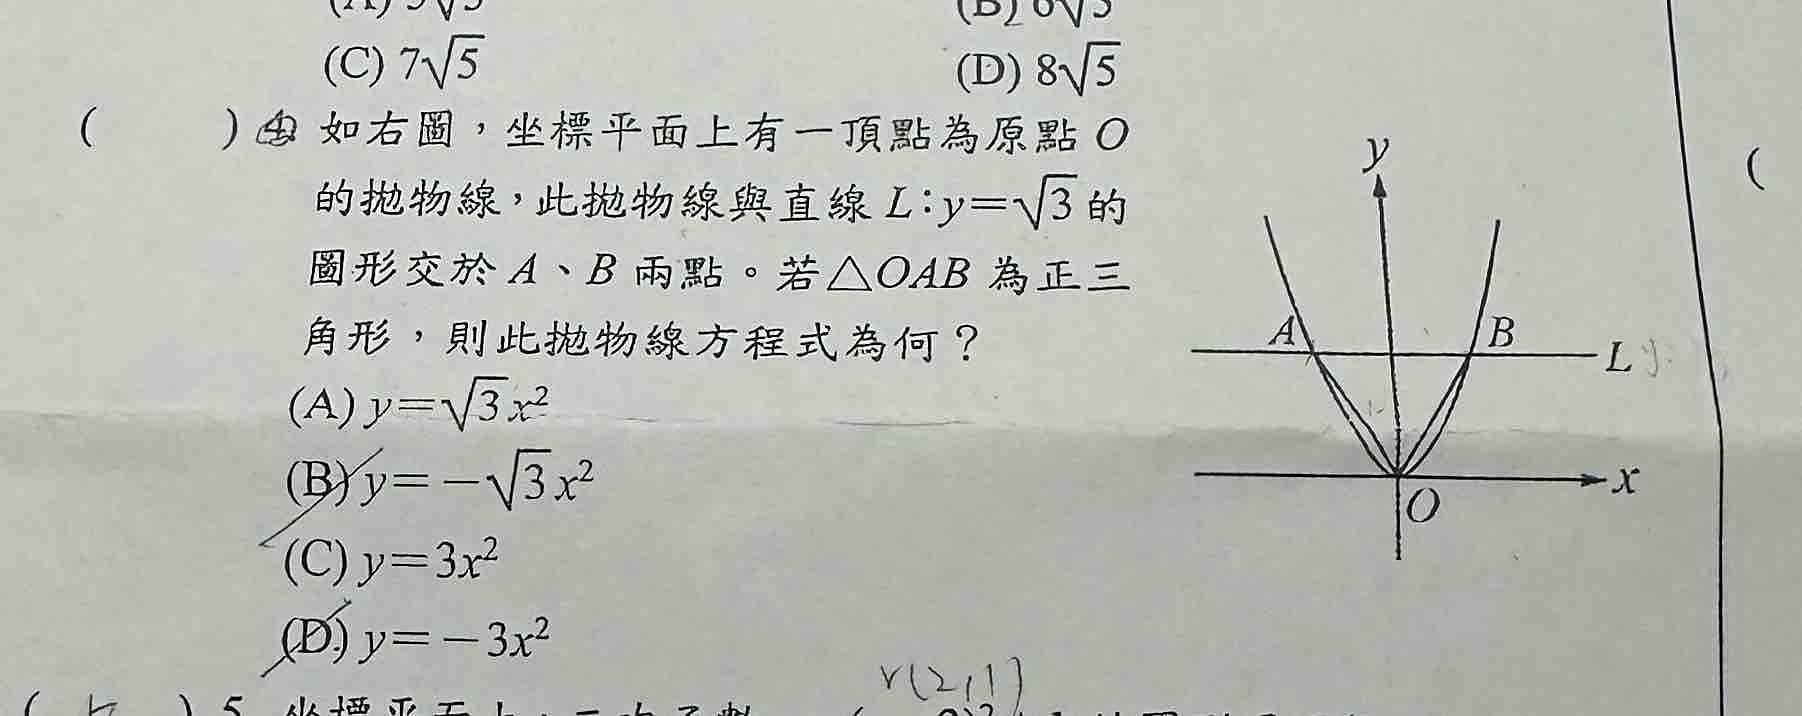 (C) 7√5
(D) 8√5
( ) 4. 如右圖，坐標平面上有一頂點為原點 O
的拋物線，此拋物線與直線 L:y=√3 的
圖形交於 A、B 兩點。若△OAB 為正三
角形，則此拋物線方程式為何？
(A) y=√3x²
(B) y=−√3x²
(C) y=3x²
(D) y=−3x²
y
A
B
L
x
O
(
V(2,1)
5.